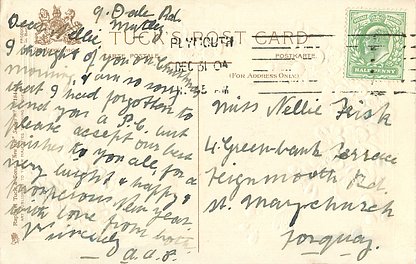 9. Dale Rd.
Mutley
Dear Nellie
I thought of you on Christmas
morning, & am so sorry
that I had forgotten to
send you a P.C. but
please accept our best
wishes to you all, for a
very bright & happy &
prosperous New Year.
with love from both.
Yrs sincerely
TUCK'S POST CARD
POSTKARTE
(FOR ADDRESS ONLY.)
PLYMOUTH
DEC 31 04
HALFPENNY
Miss Nellie Fisk
4 Greenbank Terrace
Teignmouth Rd.
St. Marychurch
Torquay.